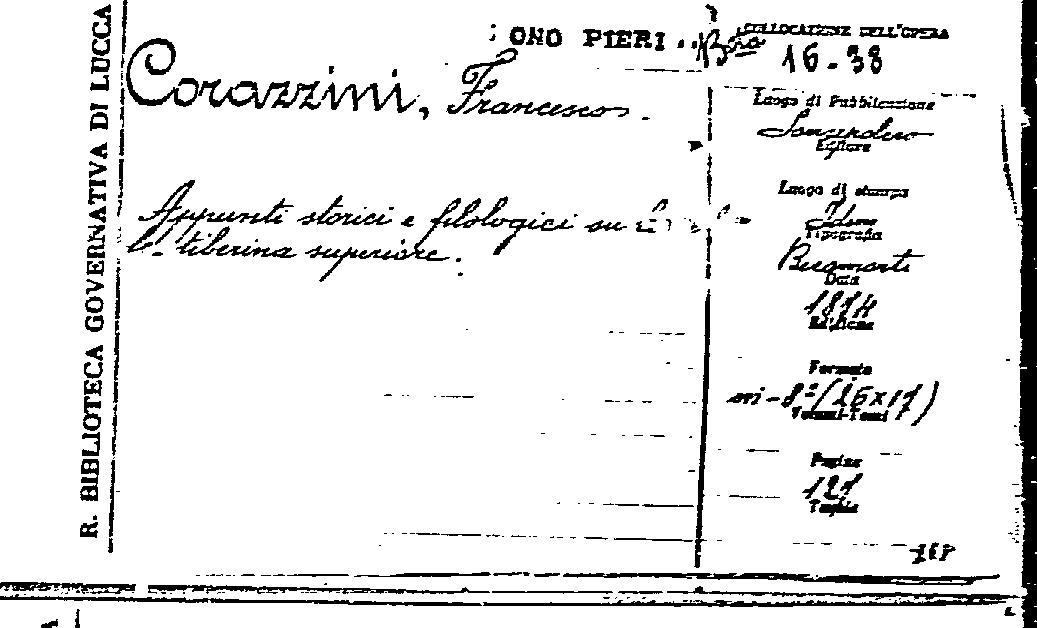 R. BIBLIOTECA GOVERNATIVA DI LUCCA
ONO PIERI
COLLOCAZIONE DELL'OPERA
16-38
Corazzini, Francesco.
Appunti storici e filologici su
tiberina superiore.
Luogo di Pubblicazione
Sansepolcro
Editore
Luogo di stampa
Idem
Tipografia
Becamorti
Data
1874
Edizione
Formato
in-8° (26x17)
Volumi-Tomi
Pagine
121
Tavole